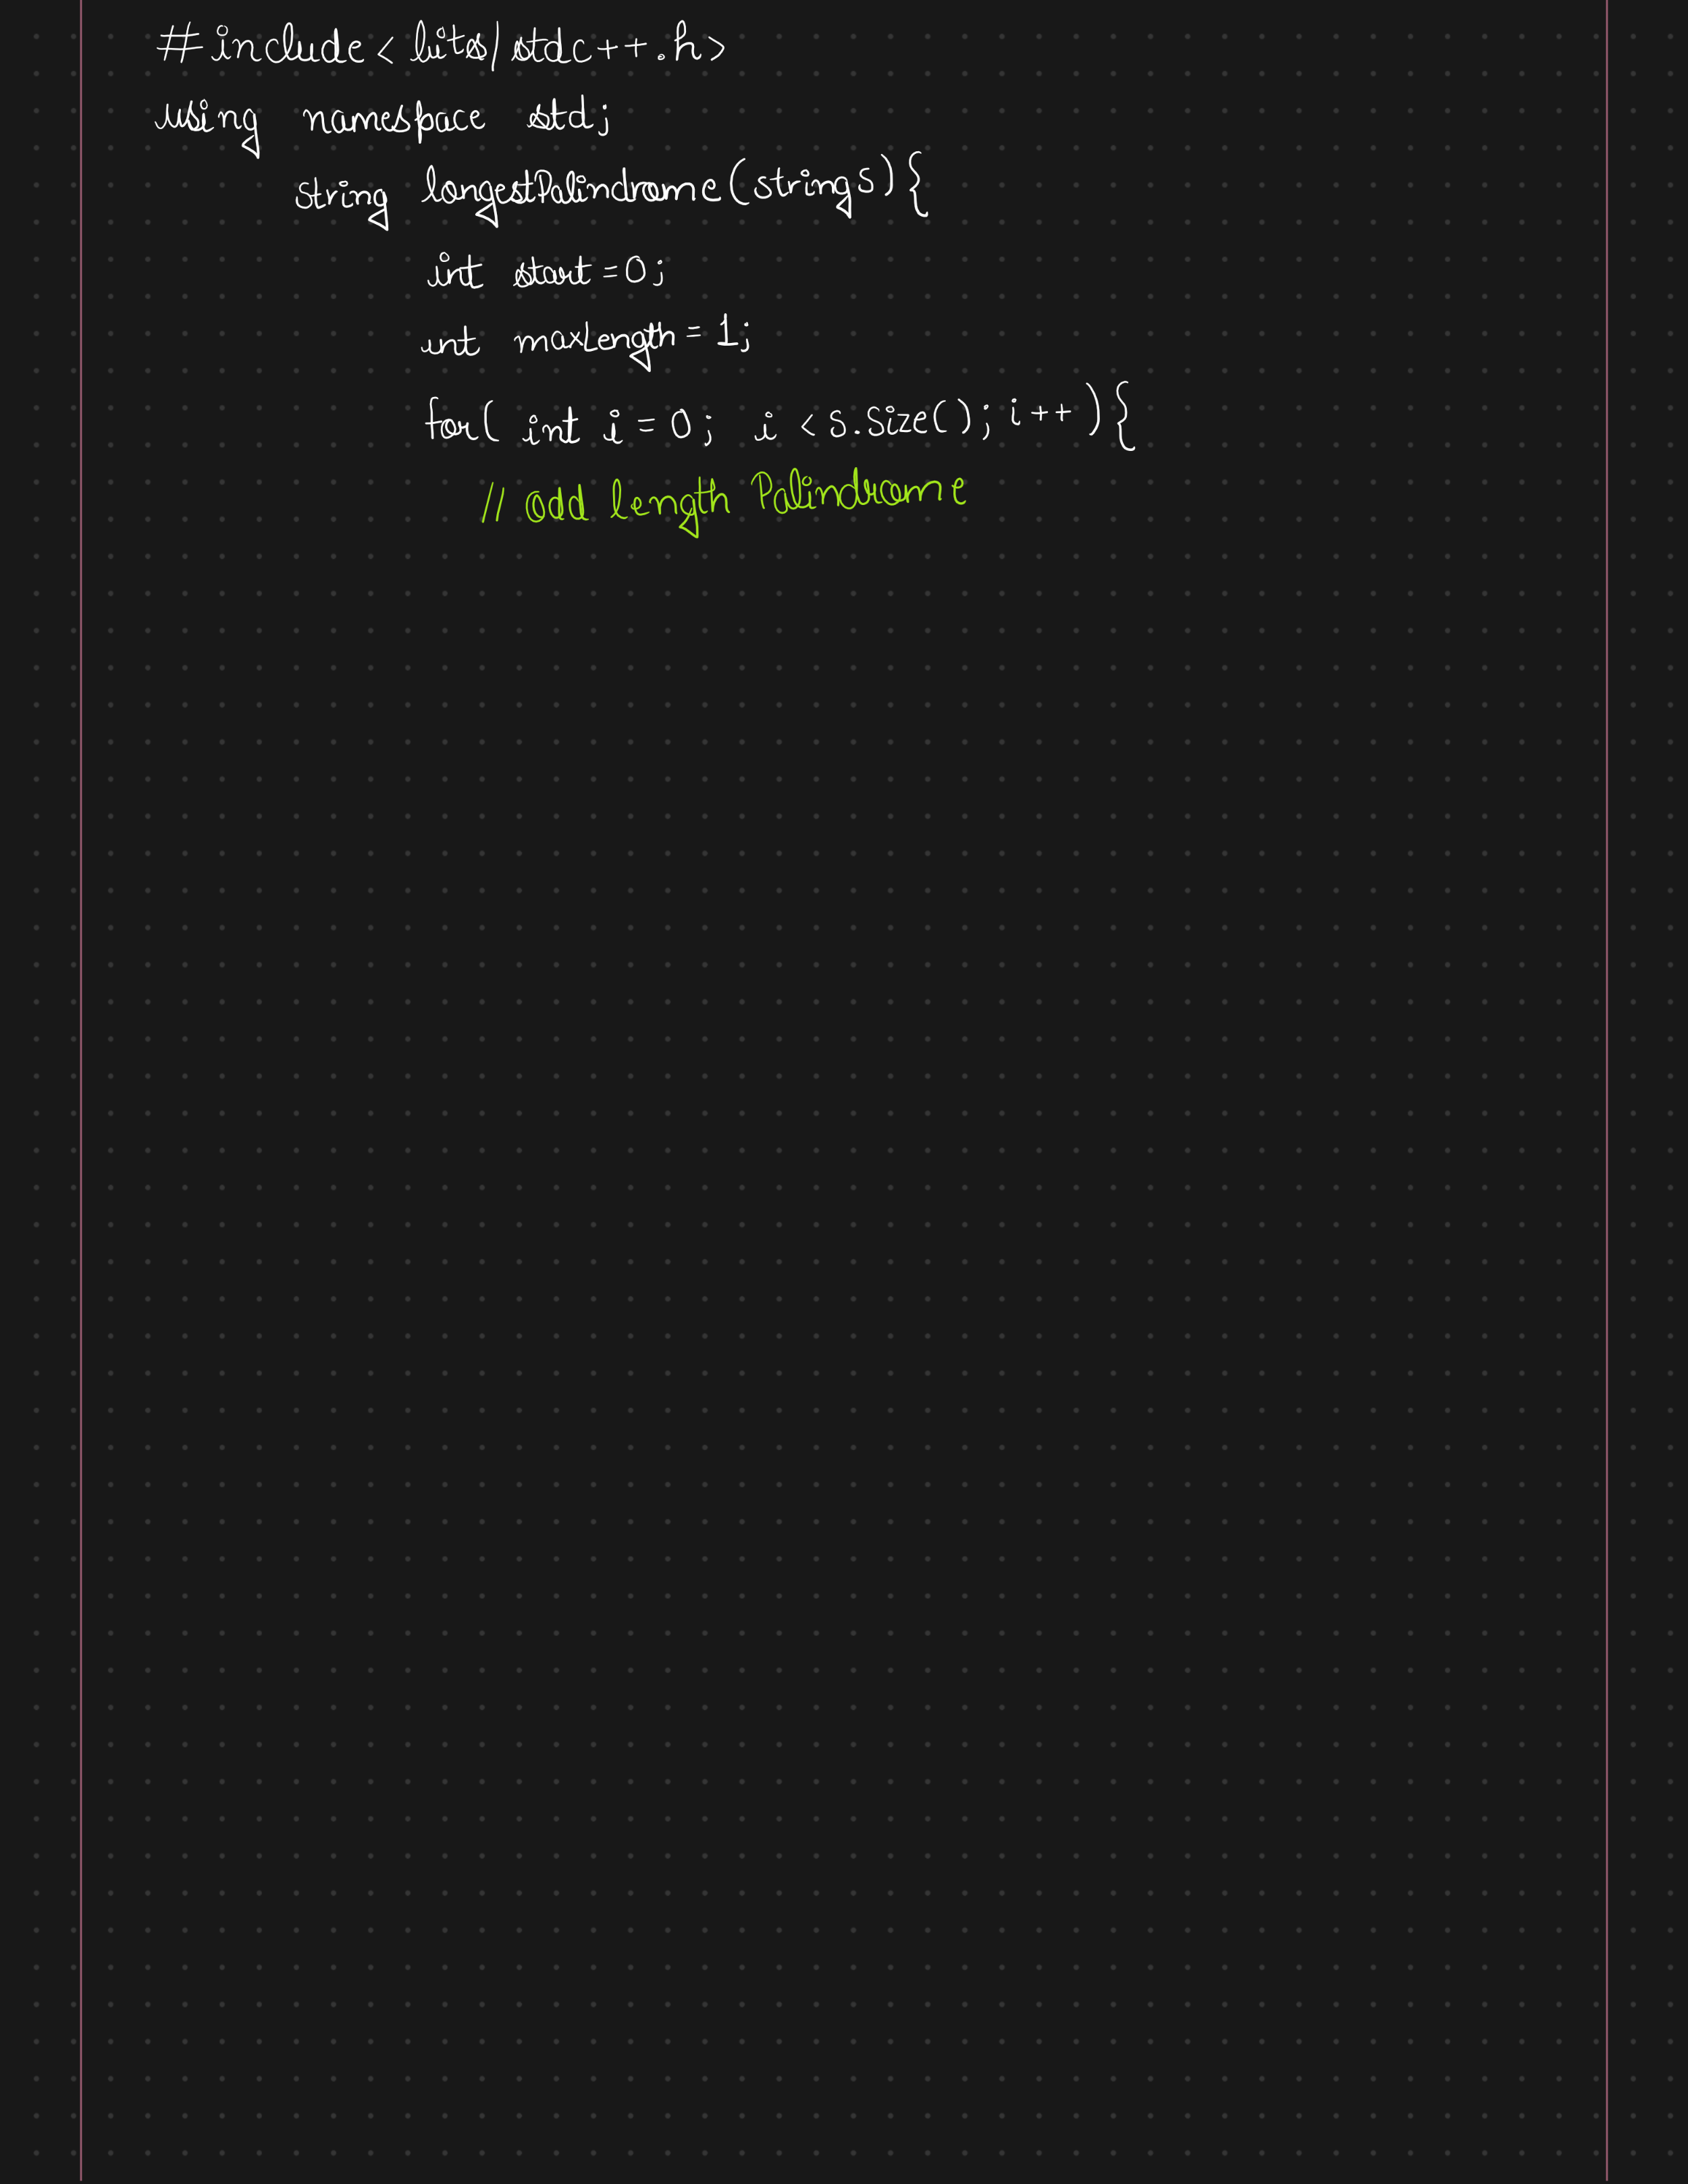 #include<bits/stdc++.h>
using namespace std;
string longestPalindrome(string s){
int start=0;
int maxLength=1;
for( int i=0; i<s.size(); i++){
// odd length Palindrome